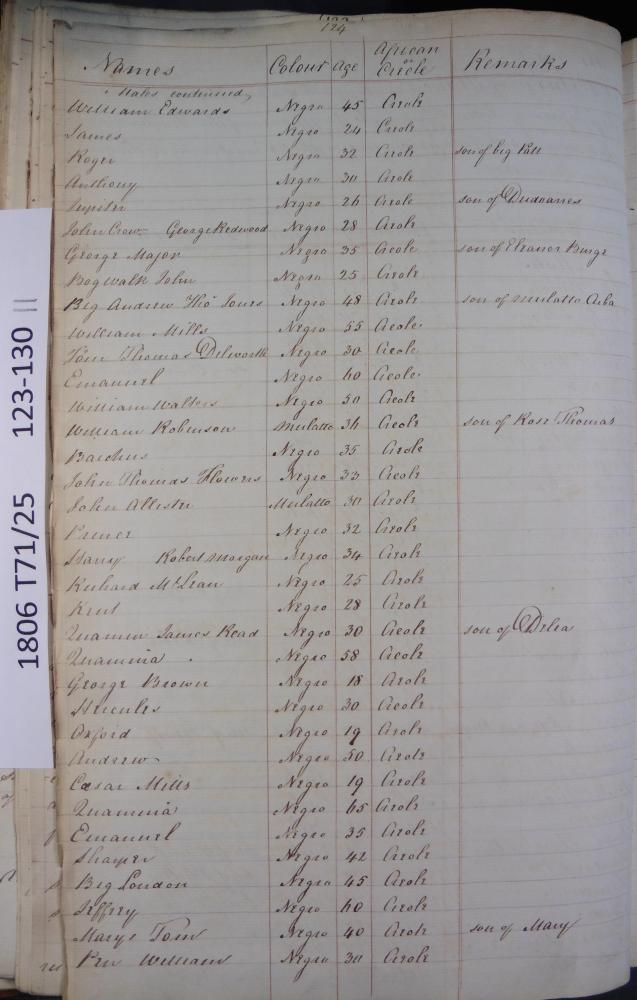 124
Names Colour Age African or Creole Remarks
Males continued
William Edwards Negro 45 Creole
James Negro 24 Creole
Roger Negro 32 Creole son of big
Anthony Negro 30 Creole
Jupiter Negro 26 Creole son of
John Crow George Redwood Negro 28 Creole
George Major Negro 35 Creole son of Eleanor Burge
Bogwalk John Negro 25 Creole
Big Andrew Tho' Jones Negro 48 Creole son of mulatto Cuba
William Mills Negro 55 Creole
Tom Thomas Dilworth Negro 30 Creole
Emanuel Negro 60 Creole
William Walters Negro 50 Creole
William Robinson Mulatto 36 Creole son of Rose Thomas
Bacchus Negro 35 Creole
John Thomas Flowers Negro 33 Creole
John Allister Mulatto 30 Creole
Prince Negro 32 Creole
Harry Robert Morgan Negro 34 Creole
Richard McLean Negro 25 Creole
Kent Negro 28 Creole
Quamin James Read Negro 30 Creole son of Delia
Quamina Negro 58 Creole
George Brown Negro 18 Creole
Hercules Negro 30 Creole
Oxford Negro 19 Creole
Andrew Negro 50 Creole
Cæsar Mills Negro 19 Creole
Quamina Negro 65 Creole
Emanuel Negro 35 Creole
Negro 42 Creole
Big London Negro 45 Creole
Jeffrey Negro 60 Creole
Marys Tom Negro 40 Creole son of Mary
William Negro 30 Creole
1806 T71/25 123-130 ||